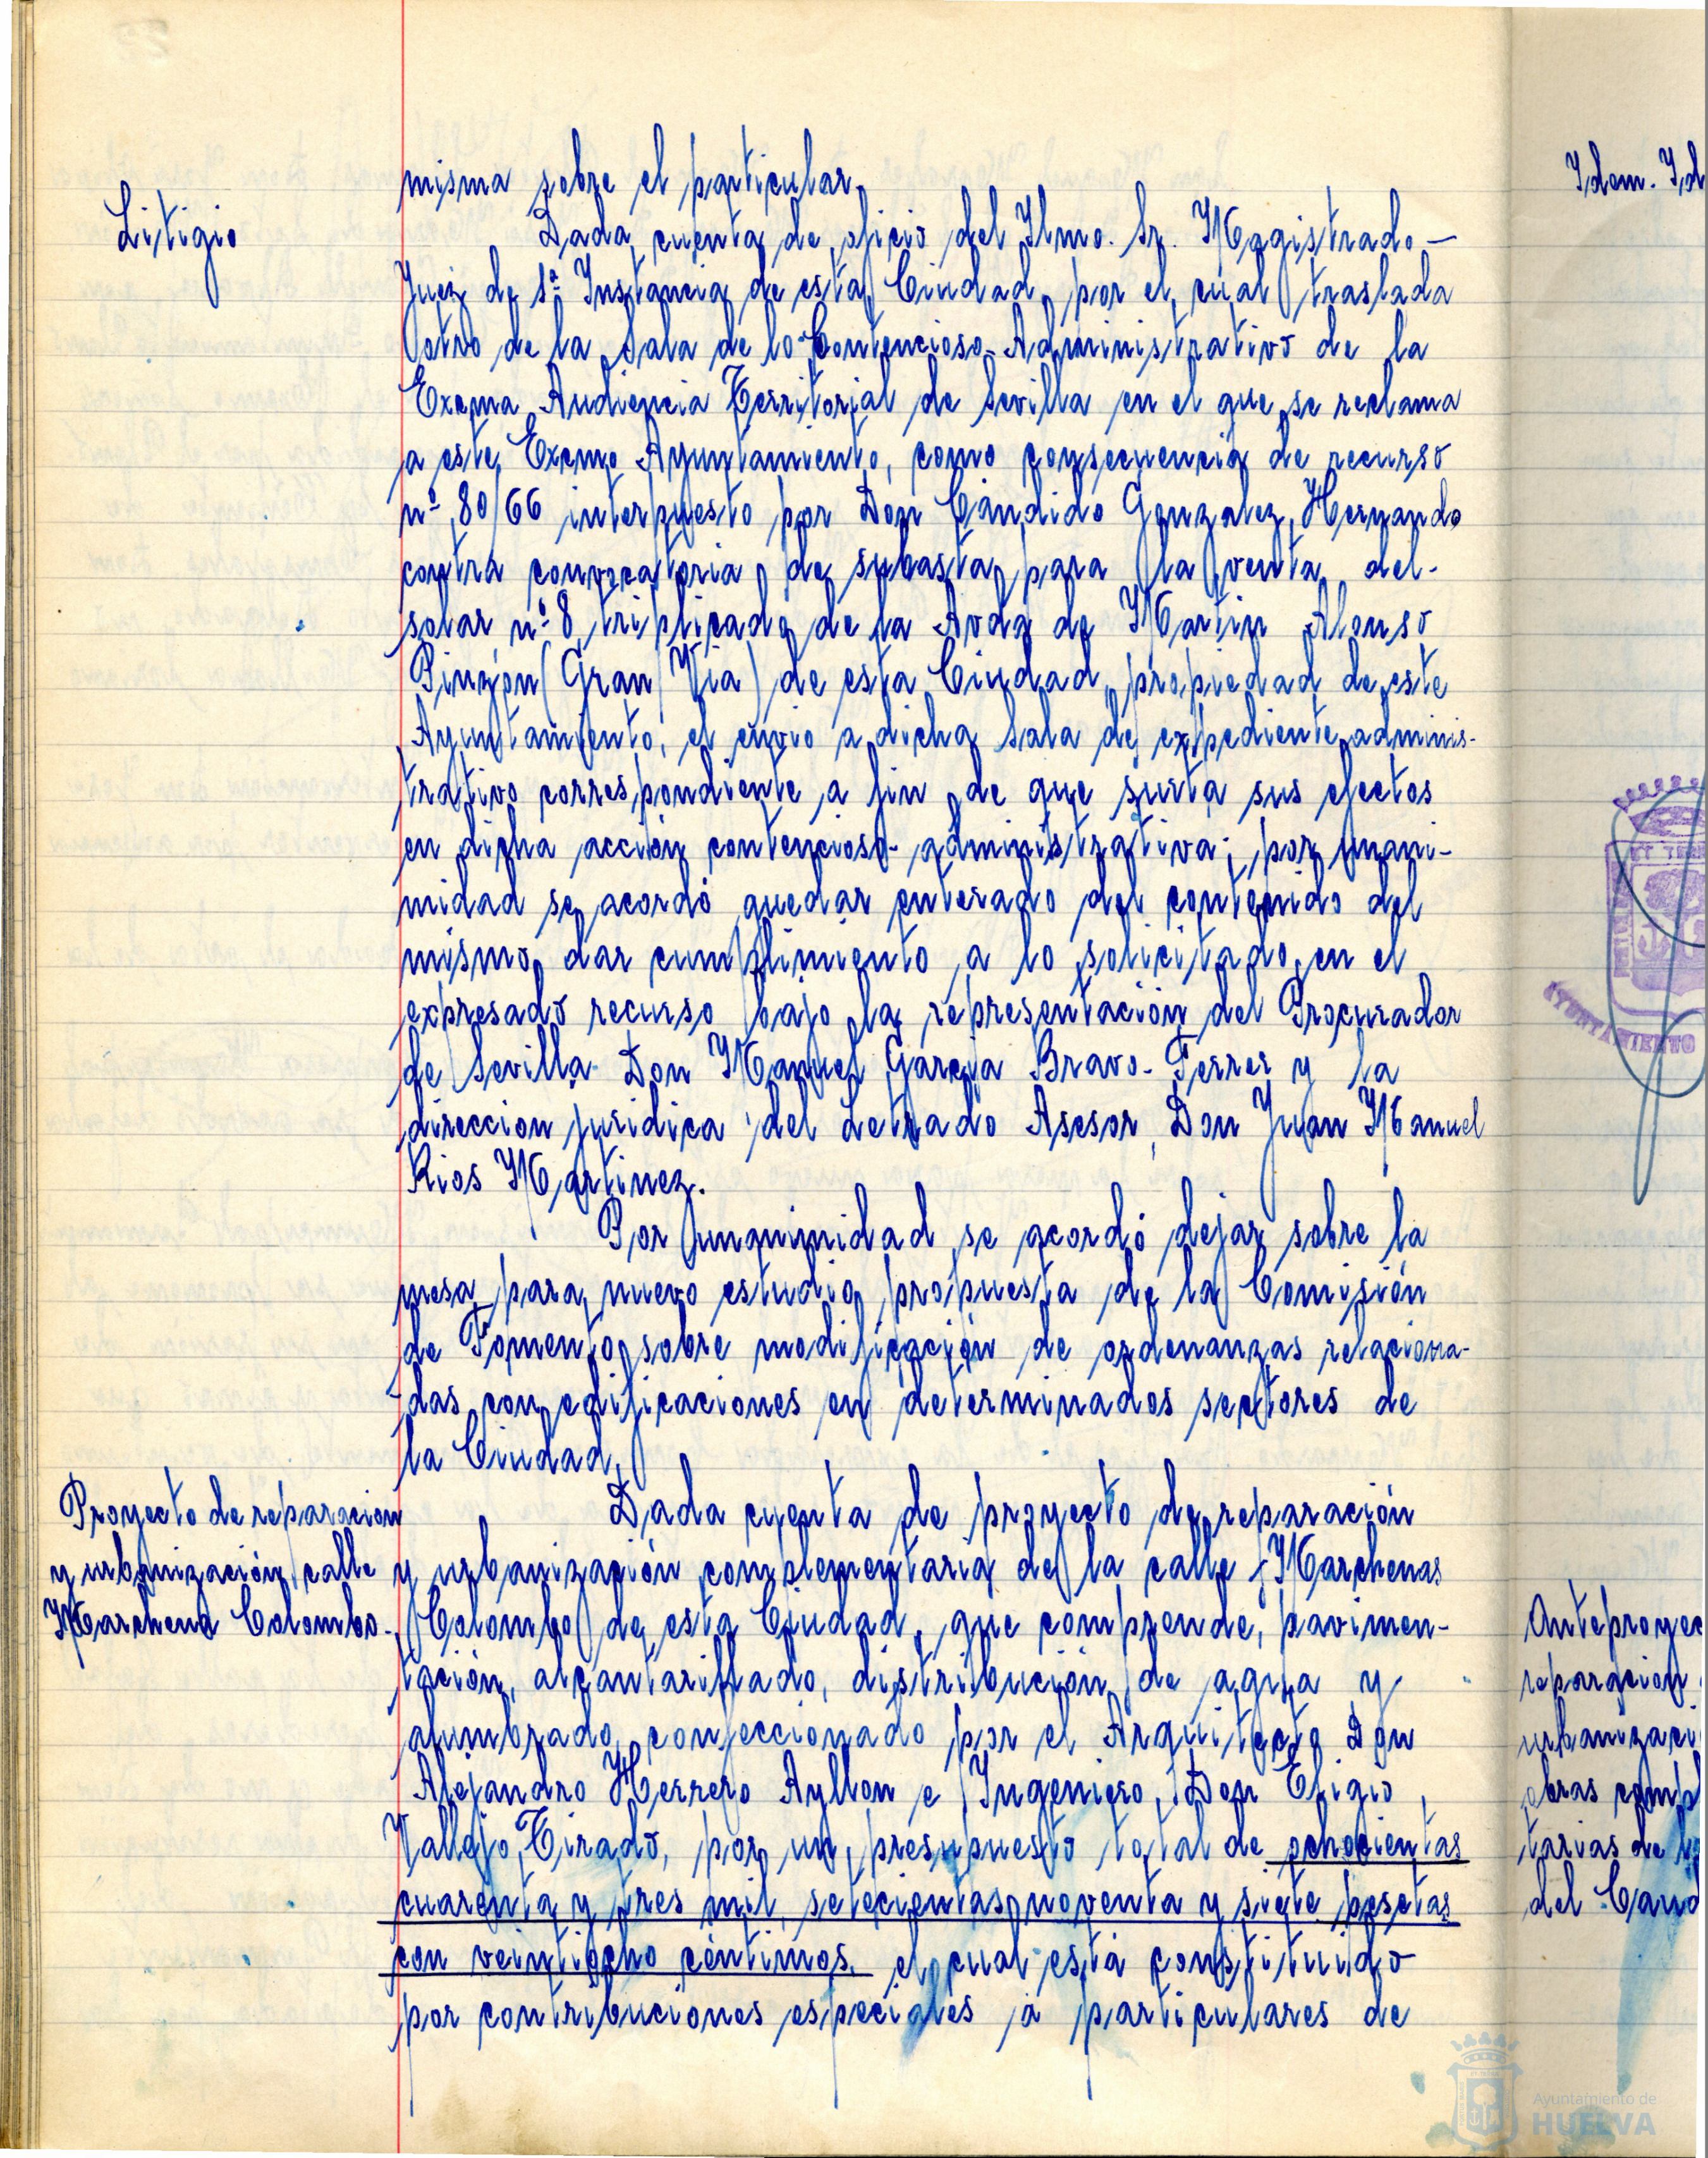 misma sobre el particular.
Litigio
Dada cuenta de oficio del Ilmo. Sr. Magistrado-
Juez de 1ª Instancia de esta Ciudad, por el cual traslada
otro de la Sala de lo Contencioso-Administrativo de la
Excma Audiencia Territorial de Sevilla en el que se reclama
a este Excmo Ayuntamiento, como consecuencia de recurso
nº 80/66 interpuesto por Don Cándido Gonzalez Hernando
contra convocatoria de subasta para la venta del
solar nº 8 triplicado de la Avda de Martin Alonso
Pinzón (Gran Via) de esta Ciudad, propiedad de este
Ayuntamiento, el envio a dicha Sala de expediente adminis-
trativo correspondiente a fin de que surta sus efectos
en dicha acción contencioso-administrativa; por unani-
midad se acordó quedar enterado del contenido del
mismo, dar cumplimiento a lo solicitado en el
expresado recurso bajo la representación del Procurador
de Sevilla Don Manuel Garcia Bravo-Ferrer y la
direccion juridica del Letrado Asesor, Don Juan Manuel
Rios Martinez.
Por unanimidad se acordó dejar sobre la
mesa para nuevo estudio, propuesta de la Comisión
de Fomento, sobre modificación de ordenanzas relaciona-
das con edificaciones en determinados sectores de
la Ciudad.
Proyecto de reparacion
y urbanización calle
Marchena Colombo.
Dada cuenta de proyecto de reparación
y urbanización complementaria de la calle Marchenas
Colombo de esta Ciudad, que comprende, pavimen-
tación, alcantarillado, distribución de agua y
alumbrado, confeccionado por el Arquitecto Don
Alejandro Herrero Ayllon e Ingeniero, Don Eligio
Vallejo Tirado, por un presupuesto total de ochocientas
cuarenta y tres mil, setecientas noventa y siete pesetas
con veintiocho céntimos, el cual está constituido
por contribuciones especiales a particulares de
Idem. Id
AYUNTAMIENTO
Anteproyec
reparacion
urbanizaci
obras compl
tarias de
del Card
Ayuntamiento de
HUELVA